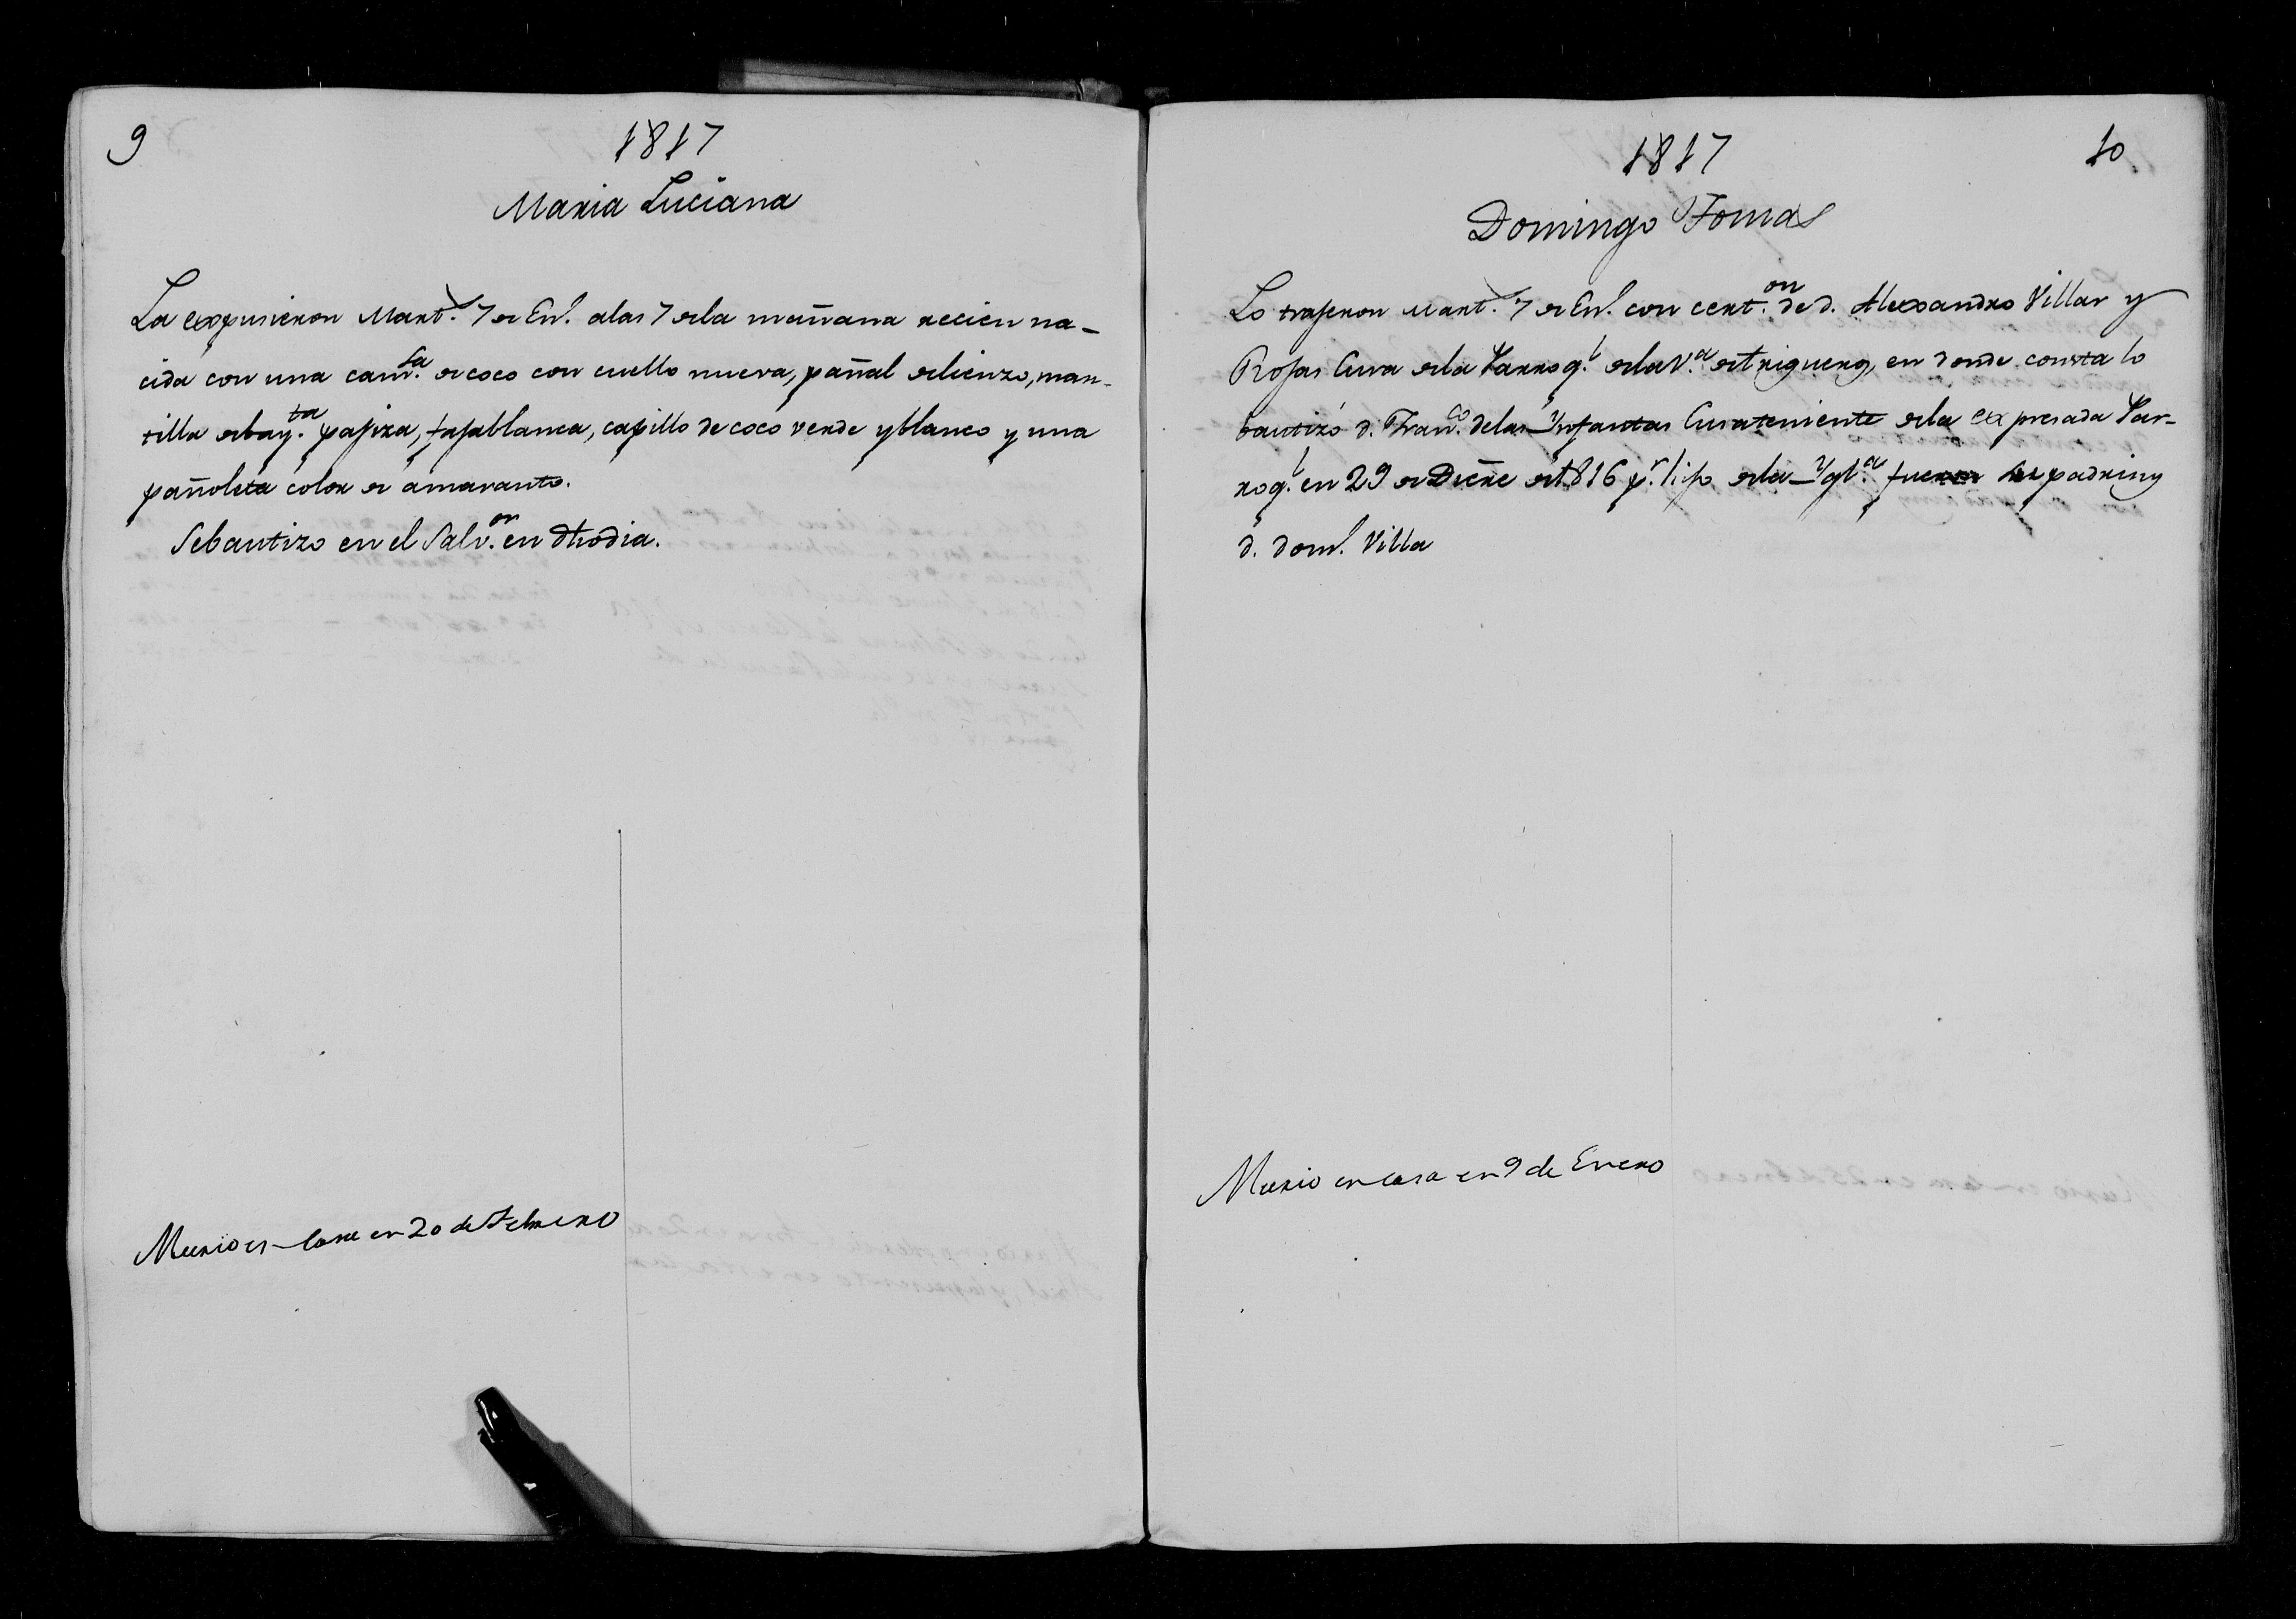 9
1817
Maria Luciana
La expusieron Mart.s 7 de En.o a las 7 de la mañana recien na-
cida con una cam.sa de coco con cuello nueva, pañal de lienzo, man-
tilla de bay.ta pajiza, faja blanca, capillo de coco verde y blanco y una
pañoleta color de amaranto.
Se bautizo en el Salv.or en dho dia.
Murio en Casa en 20 de Febrero
10
1817
Domingo Tomas
Lo trajeron Mart.s 7 de En.o con cert.on de d. Alexandro Villar y
Rojas Cura de la Parroq.l de la V.a de Trigueros, en donde consta lo
bautizó d. Fran.co de las Infantas Cura teniente de la expresada Par-
roq.l en 29 de Dicre de 1816 p.r hijo de la Ygl.a padrinos
d. Dom.o Villa
Murio en casa en 9 de Enero